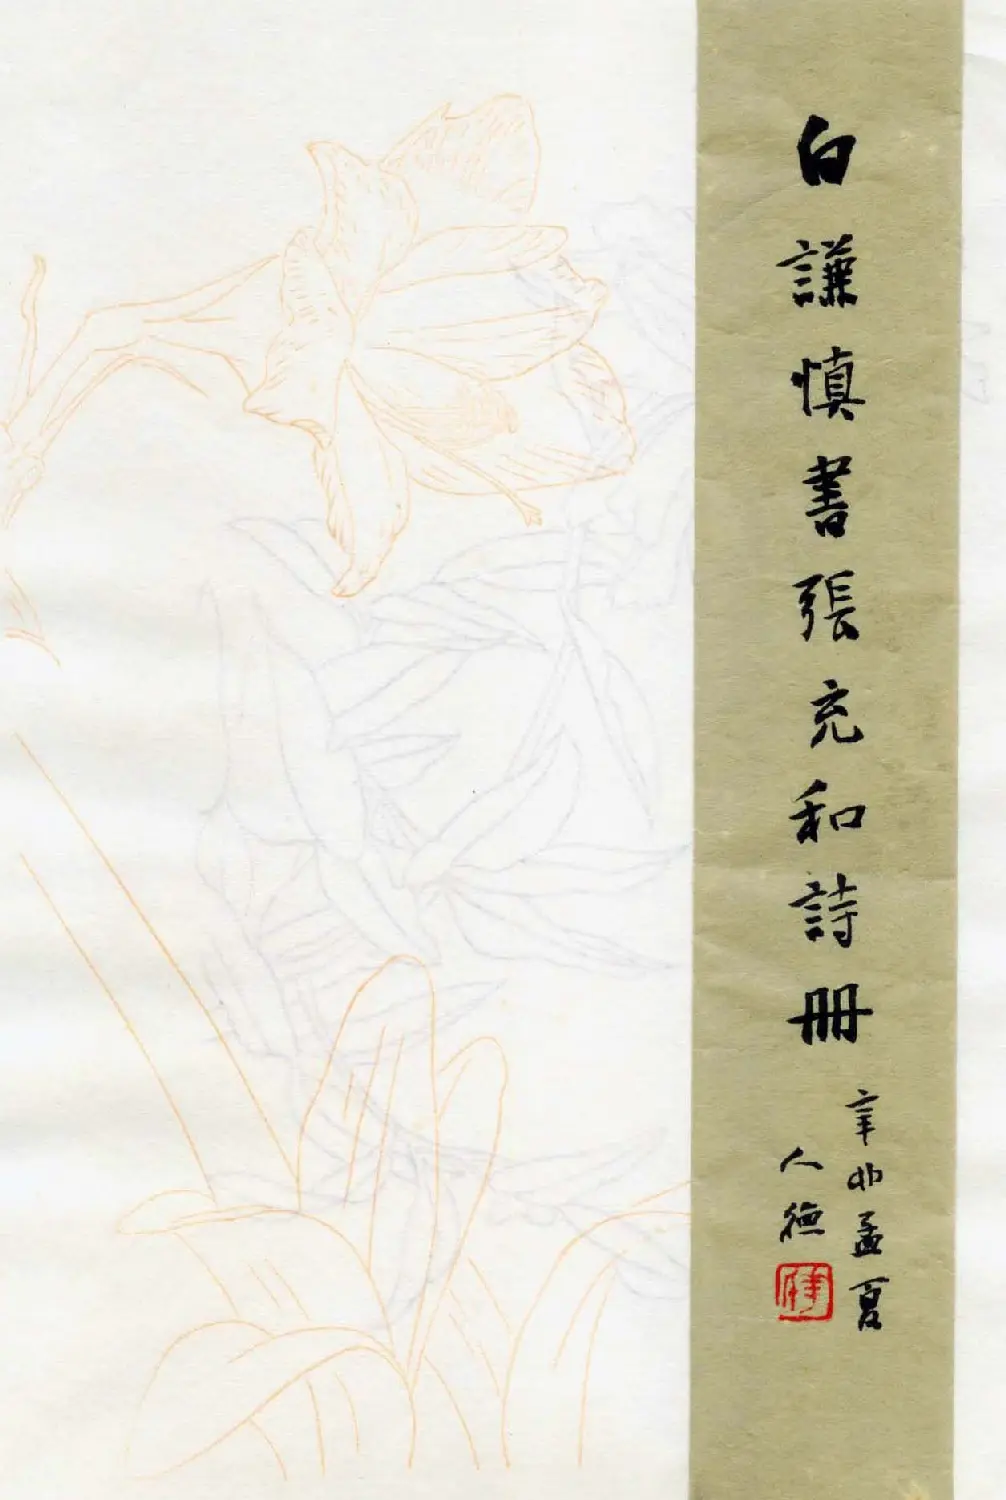 白謙慎書張充和詩冊
辛卯孟夏
人德